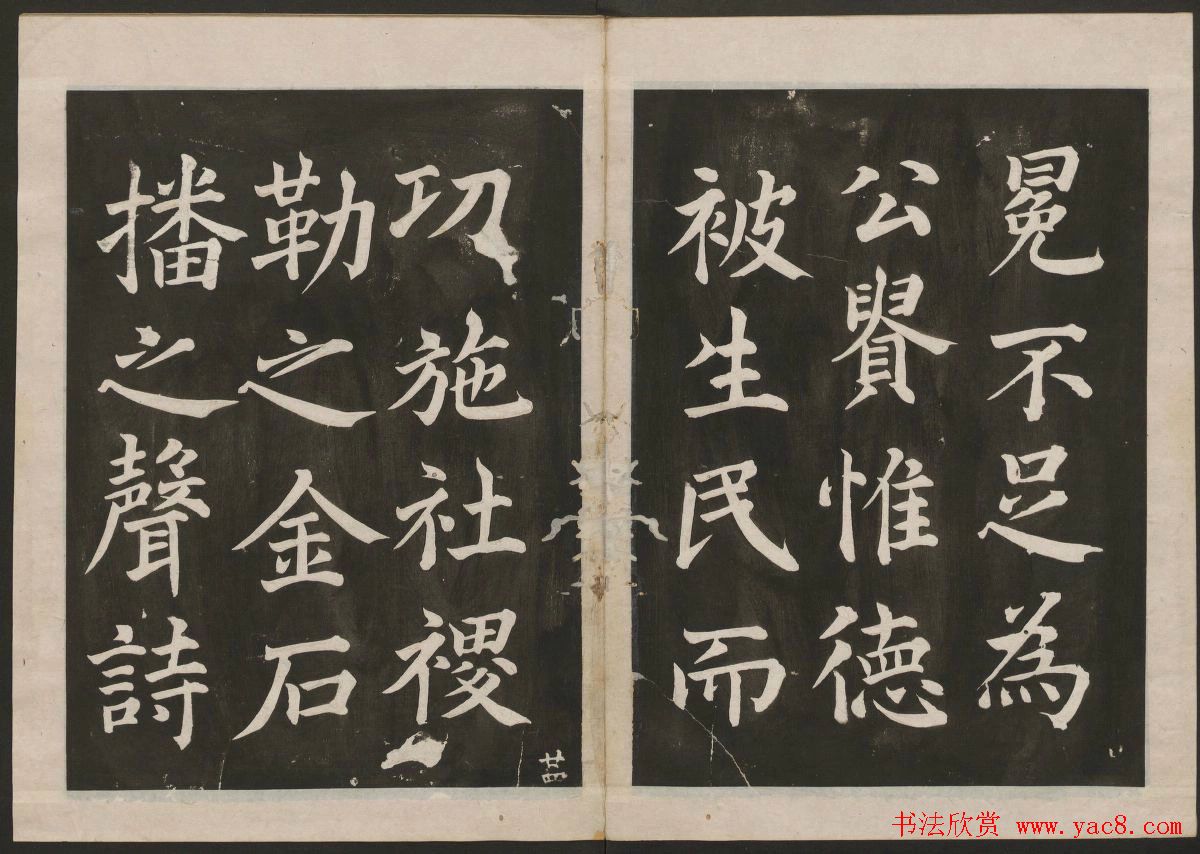 冕不足為
公貴惟德
被生民而
功施社禝
勒之金石
播之聲詩
廿四
书法欣赏 www.yac8.com